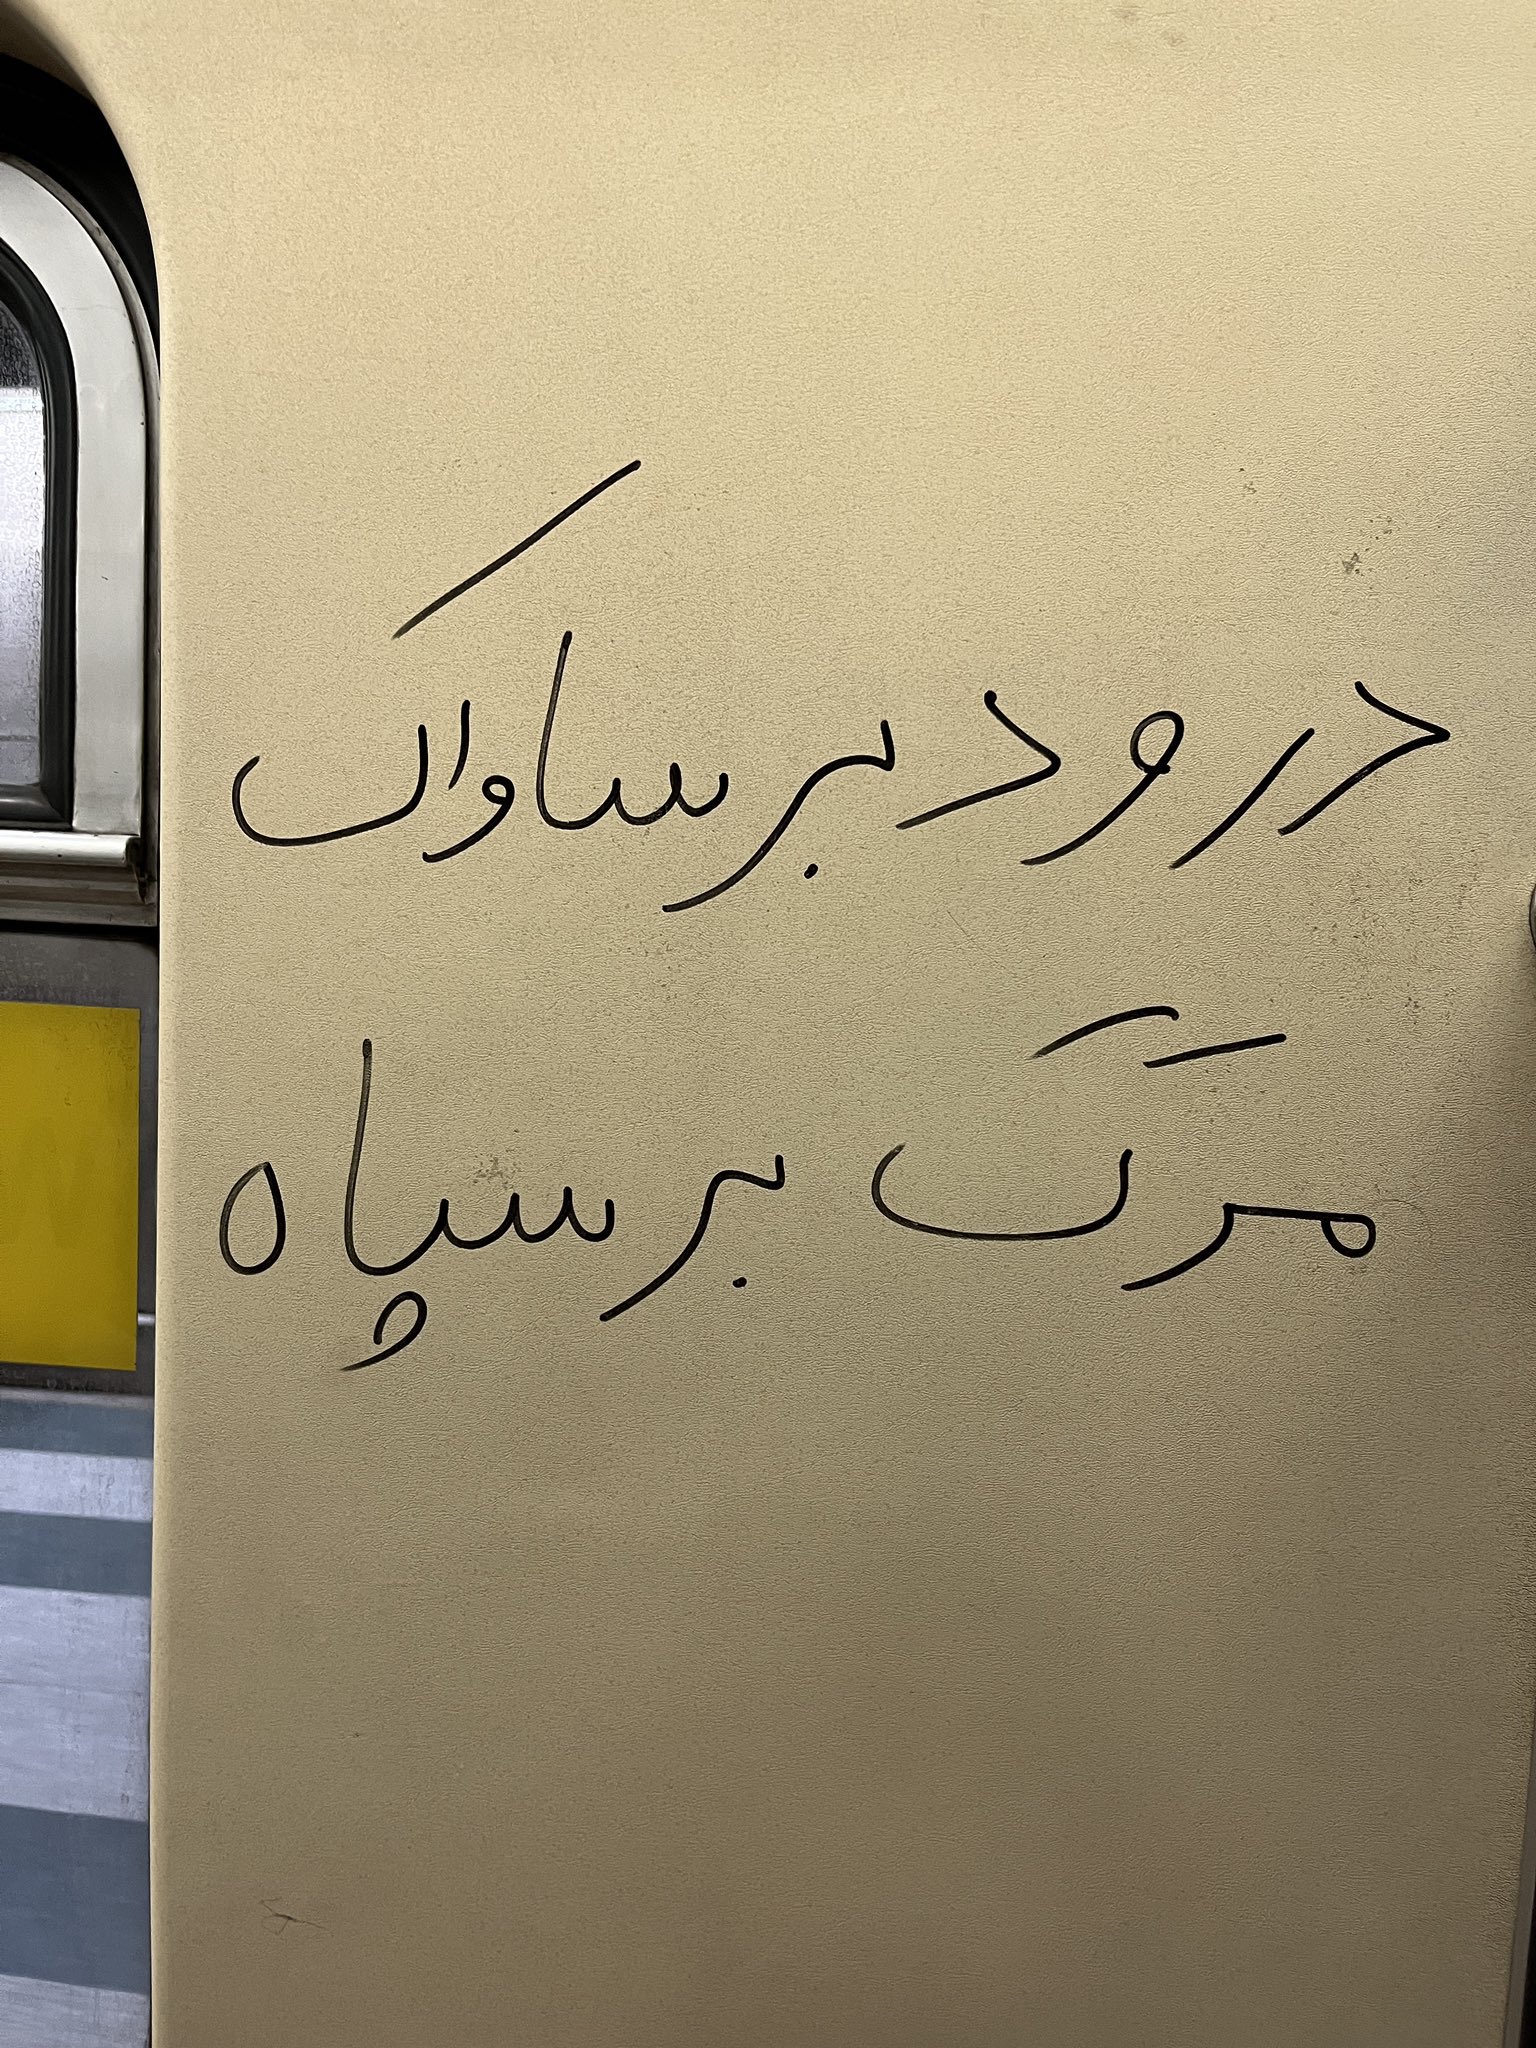 درود بر ساواک
مرگ بر سپاه